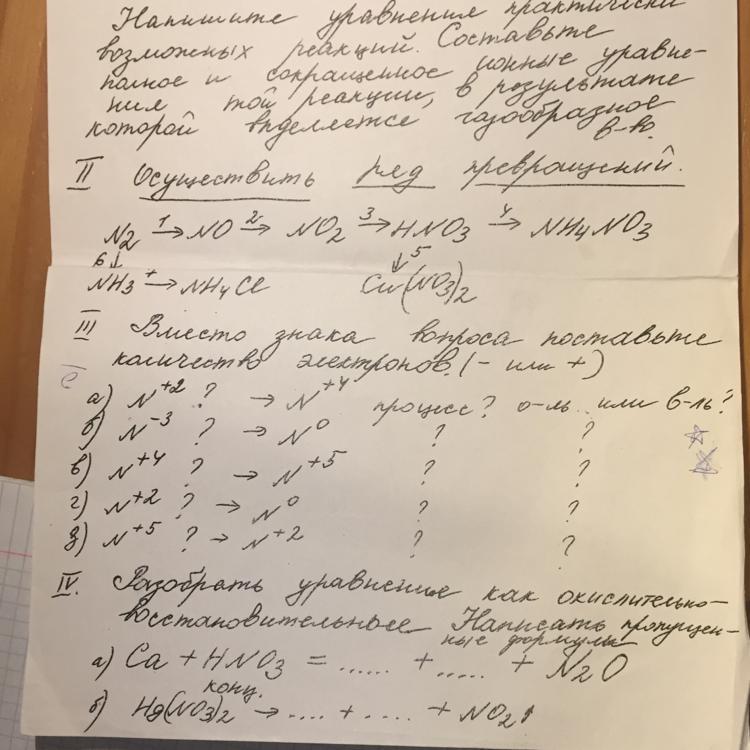 Напишите уравнения практически
возможных реакций. Составьте
полное и сокращенное ионные уравне-
ния той реакции, в результате
которой выделяется газообразное
в-во.
II Осуществить ряд превращений.
N2 1→ NO 2→ NO2 3→ HNO3 4→ NH4NO3
6↓ ↓5
NH3 → NH4Cl Cu(NO3)2
III Вместо знака вопроса поставьте
количество электронов (- или +)
а) N+2 ? → N+4 процесс? о-ль или в-ль?
б) N-3 ? → N0 ? ?
в) N+4 ? → N+5 ? ?
г) N+2 ? → N0 ? ?
д) N+5 ? → N+2 ? ?
IV. Разобрать уравнения как окислительно-
восстановительное Написать пропущен-
ные формулы
а) Ca + HNO3 = ..... + ..... + N2O
конц.
б) Hg(NO3)2 → .... + .... + NO2↑